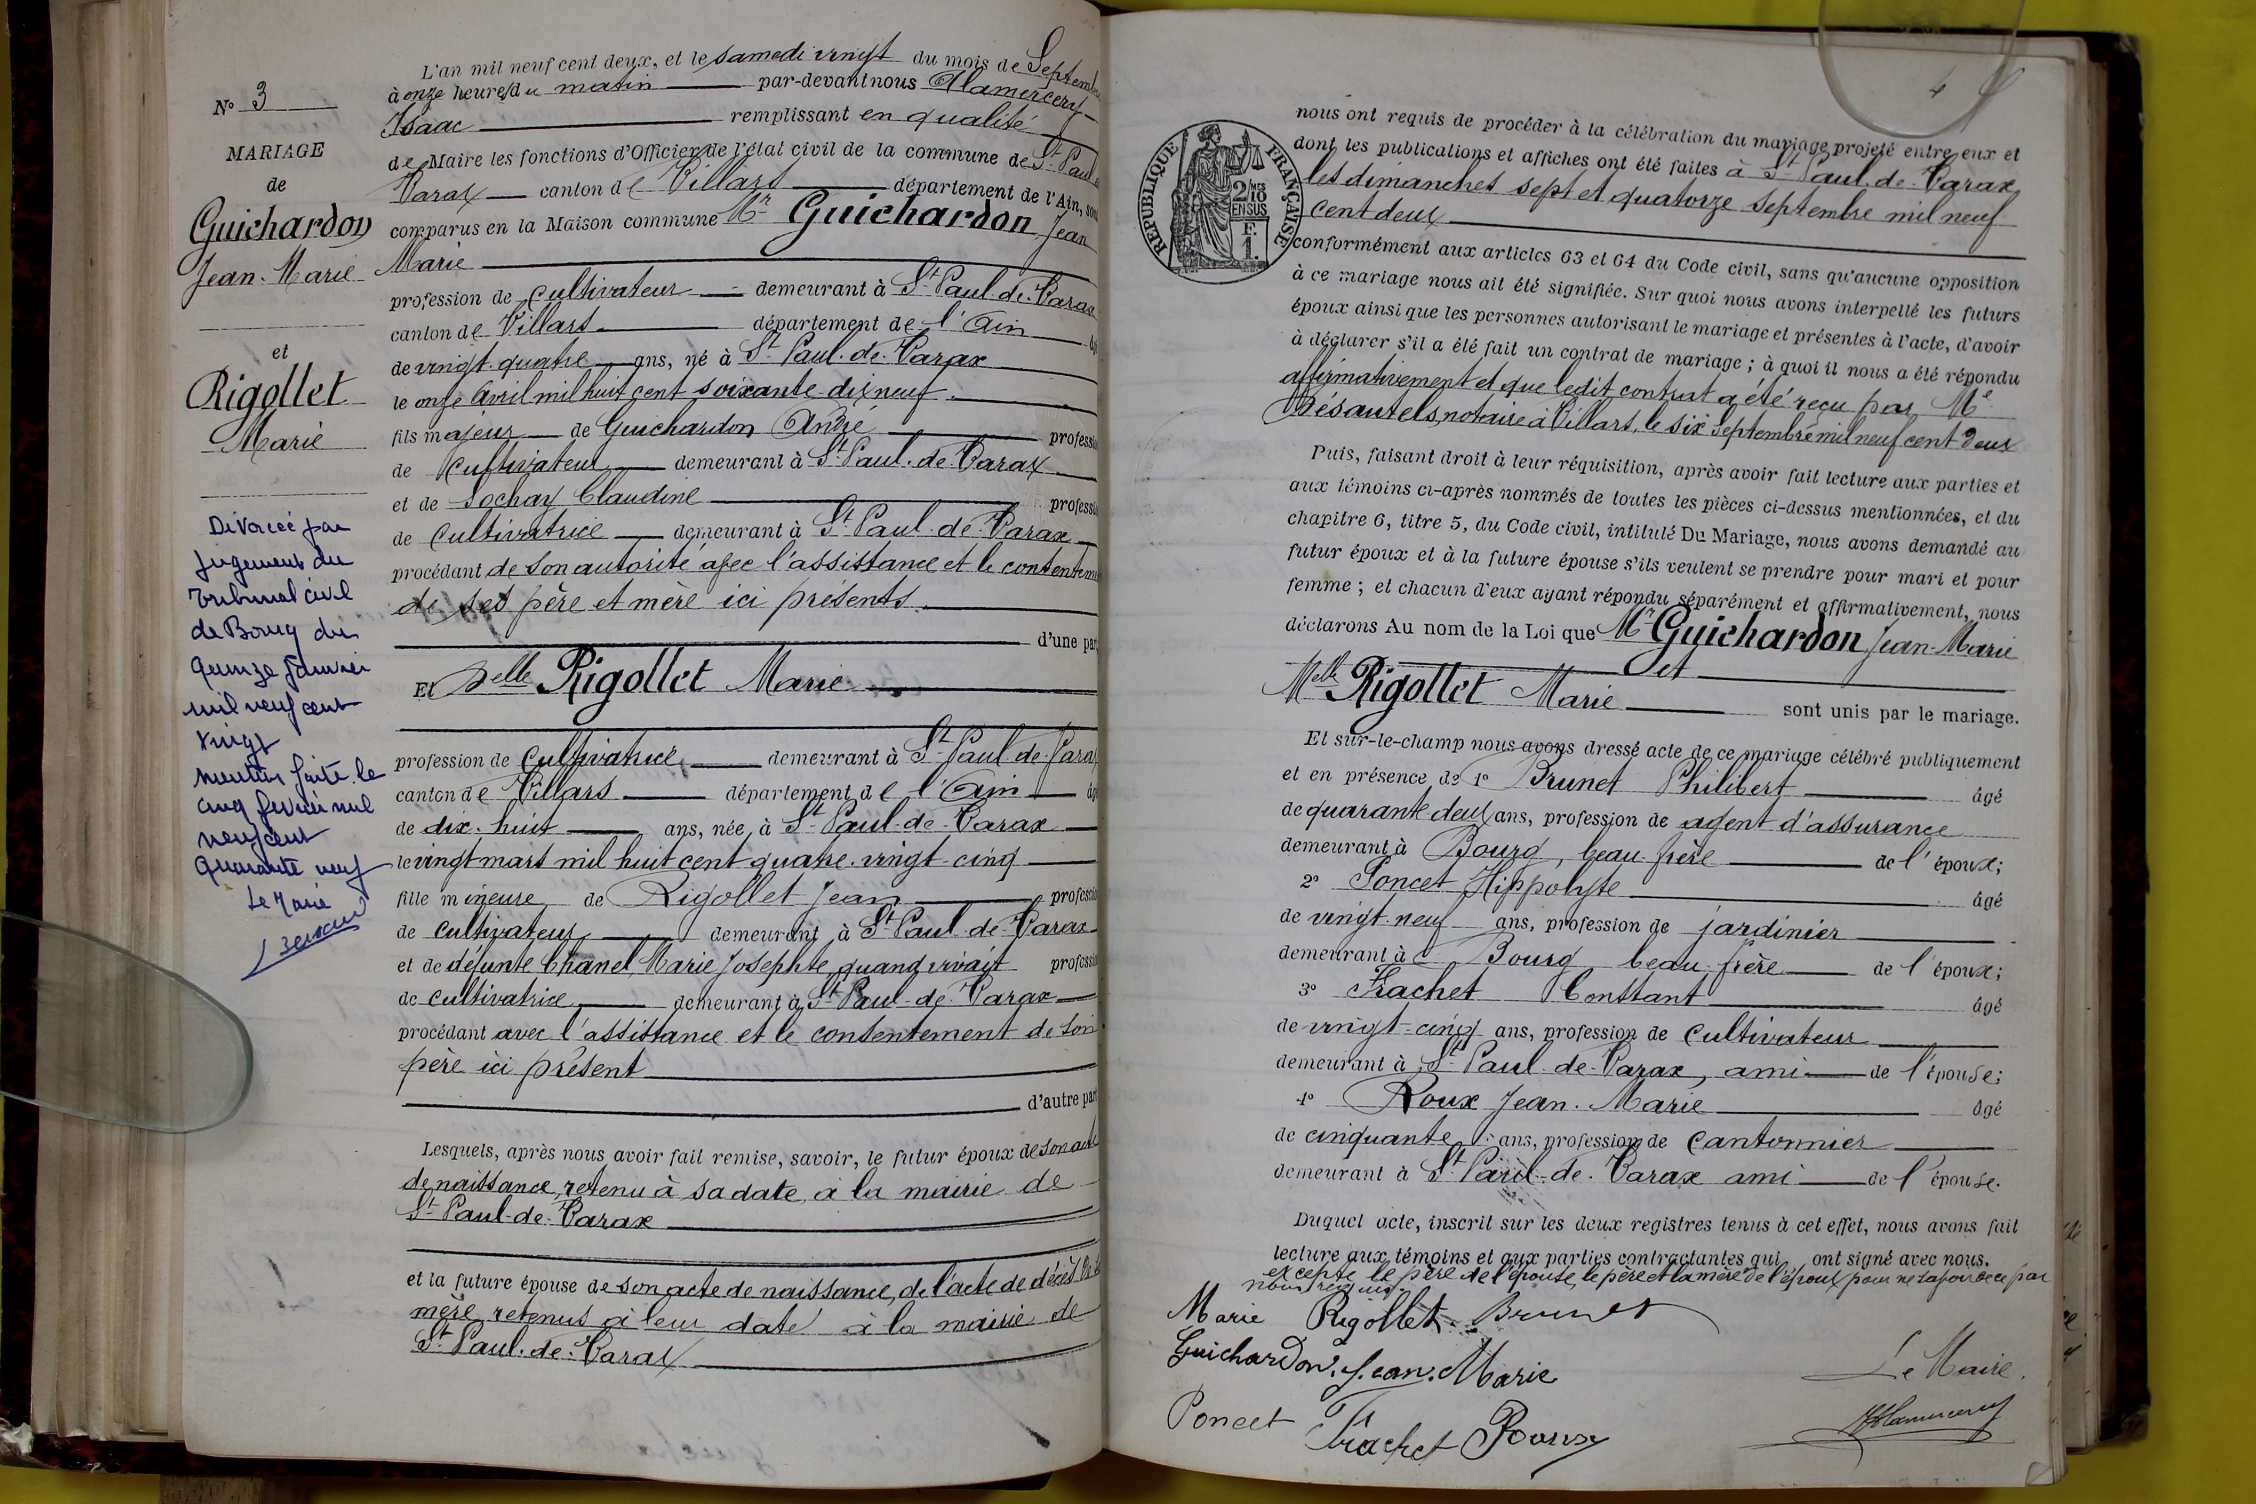 N° 3
MARIAGE
de
Guichardon
Jean-Marie
et
Rigollet
Marie
Divorcé par
jugement du
Tribunal civil
de Bourg du
quinze Janvier
mil neuf cent
vingt
mention faite le
cinq février mil
neuf cent
quarante neuf
Le Maire
L'an mil neuf cent deux, et le samedi vingt du mois de Septembre
à onze heures du matin par-devant nous Alamercery
Isaac remplissant en qualité
de Maire les fonctions d'Officier de l'état civil de la commune de St Paul de
Varax canton de Villars département de l'Ain, sont
comparus en la Maison commune Mr Guichardon Jean
Marie
profession de cultivateur demeurant à St Paul-de-Varax
canton de Villars département de l'Ain âgé
de vingt-quatre ans, né à St Paul-de-Varax
le onze Avril mil huit cent soixante-dix neuf
fils majeur de Guichardon André profession
de cultivateur demeurant à St Paul-de-Varax
et de Sochay Claudine profession
de cultivatrice demeurant à St Paul-de-Varax
procédant de son autorité avec l'assistance et le consentement
de ses père et mère ici présents.
d'une part
Et Delle Rigollet Marie
profession de cultivatrice demeurant à St Paul-de-Varax
canton de Villars département de l'Ain âgé
de dix-huit ans, née à St Paul-de-Varax
le vingt mars mil huit cent quatre-vingt-cinq
fille mineure de Rigollet Jean profession
de cultivateur demeurant à St Paul-de-Varax
et de défunte Chanel Marie Josephte quand vivait profession
de cultivatrice demeurant à St Paul-de-Varax
procédant avec l'assistance et le consentement de son
père ici présent
d'autre part
Lesquels, après nous avoir fait remise, savoir, le futur époux de son acte
de naissance, retenu à sa date à la mairie de
St Paul-de-Varax
et la future épouse de son acte de naissance, de l'acte de décès de sa
mère, retenus à leur date à la mairie de
St Paul-de-Varax
4
RÉPUBLIQUE FRANÇAISE
2/10
EN SUS
F.
1.
nous ont requis de procéder à la célébration du mariage projeté entre eux et
dont les publications et affiches ont été faites à St Paul-de-Varax
les dimanches sept et quatorze septembre mil neuf
cent deux
conformément aux articles 63 et 64 du Code civil, sans qu'aucune opposition
à ce mariage nous ait été signifiée. Sur quoi nous avons interpellé les futurs
époux ainsi que les personnes autorisant le mariage et présentes à l'acte, d'avoir
à déclarer s'il a été fait un contrat de mariage ; à quoi il nous a été répondu
affirmativement et que ledit contrat a été reçu par Me
Désautels, notaire à Villars, le six Septembre mil neuf cent deux
Puis, faisant droit à leur réquisition, après avoir fait lecture aux parties et
aux témoins ci-après nommés de toutes les pièces ci-dessus mentionnées, et du
chapitre 6, titre 5, du Code civil, intitulé Du Mariage, nous avons demandé au
futur époux et à la future épouse s'ils veulent se prendre pour mari et pour
femme ; et chacun d'eux ayant répondu séparément et affirmativement, nous
déclarons Au nom de la Loi que Mr Guichardon Jean-Marie
et
Melle Rigollet Marie sont unis par le mariage.
Et sur-le-champ nous avons dressé acte de ce mariage célébré publiquement
et en présence de 1° Brunet Philibert âgé
de quarante deux ans, profession de agent d'assurance
demeurant à Bourg, beau-frère de l'époux;
2° Poncet Hippolyte âgé
de vingt-neuf ans, profession de jardinier
demeurant à Bourg beau-frère de l'époux;
3° Frachet Constant âgé
de vingt-cinq ans, profession de cultivateur
demeurant à St Paul-de-Varax, ami de l'épouse;
4° Roux Jean-Marie âgé
de cinquante ans, profession de cantonnier
demeurant à St Paul-de-Varax ami de l'épouse.
Duquel acte, inscrit sur les deux registres tenus à cet effet, nous avons fait
lecture aux témoins et aux parties contractantes qui ont signé avec nous.
excepté le père de l'épouse, le père et la mère de l'époux pour ne savoir de ce par
nous requis.
Marie Rigollet. Brunet
Guichardon. Jean. Marie
Le Maire.
Poncet Frachet Roux
Alamercery